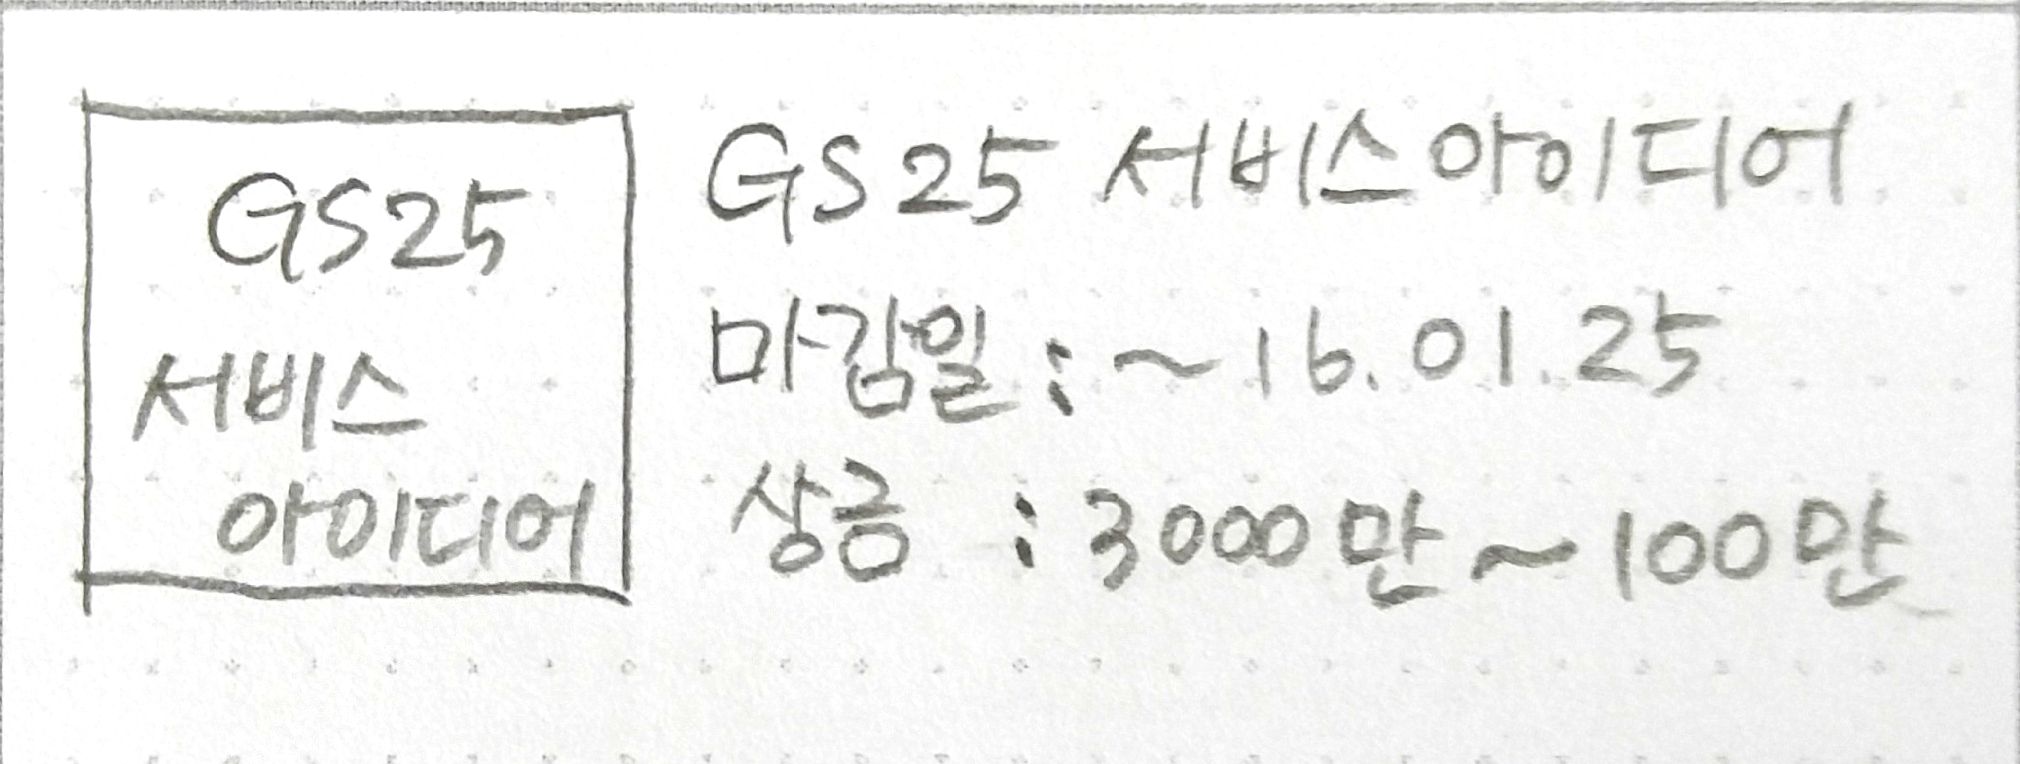 GS25
서비스
아이디어
GS25 서비스아이디어
마감일 : ~16.01.25
상금 : 3000만~100만